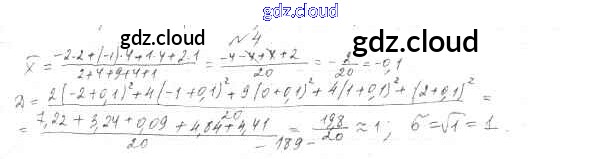 gdz.cloud
№4
gdz.cloud
gdz.cloud
x̄ = (-2·2+(-1)·4+1·4+2·1)/(2+4+9+4+1) = (-4-4+4+2)/20 = -2/20 = -0,1
D = (2(-2+0,1)²+4(-1+0,1)²+9(0+0,1)²+4(1+0,1)²+(2+0,1)²)/20 =
= (7,22+3,24+0,09+4,84+4,41)/20 = 19,8/20 ≈ 1; σ=√1=1.
- 189 -